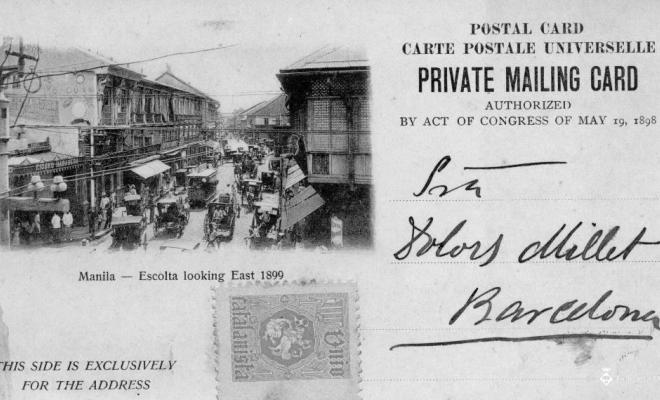 POSTAL CARD
CARTE POSTALE UNIVERSELLE
PRIVATE MAILING CARD
AUTHORIZED
BY ACT OF CONGRESS OF MAY 19, 1898
Sra
Dolors Millet
Barcelona
Manila — Escolta looking East 1899
Unió
catalanista
THIS SIDE IS EXCLUSIVELY
FOR THE ADDRESS